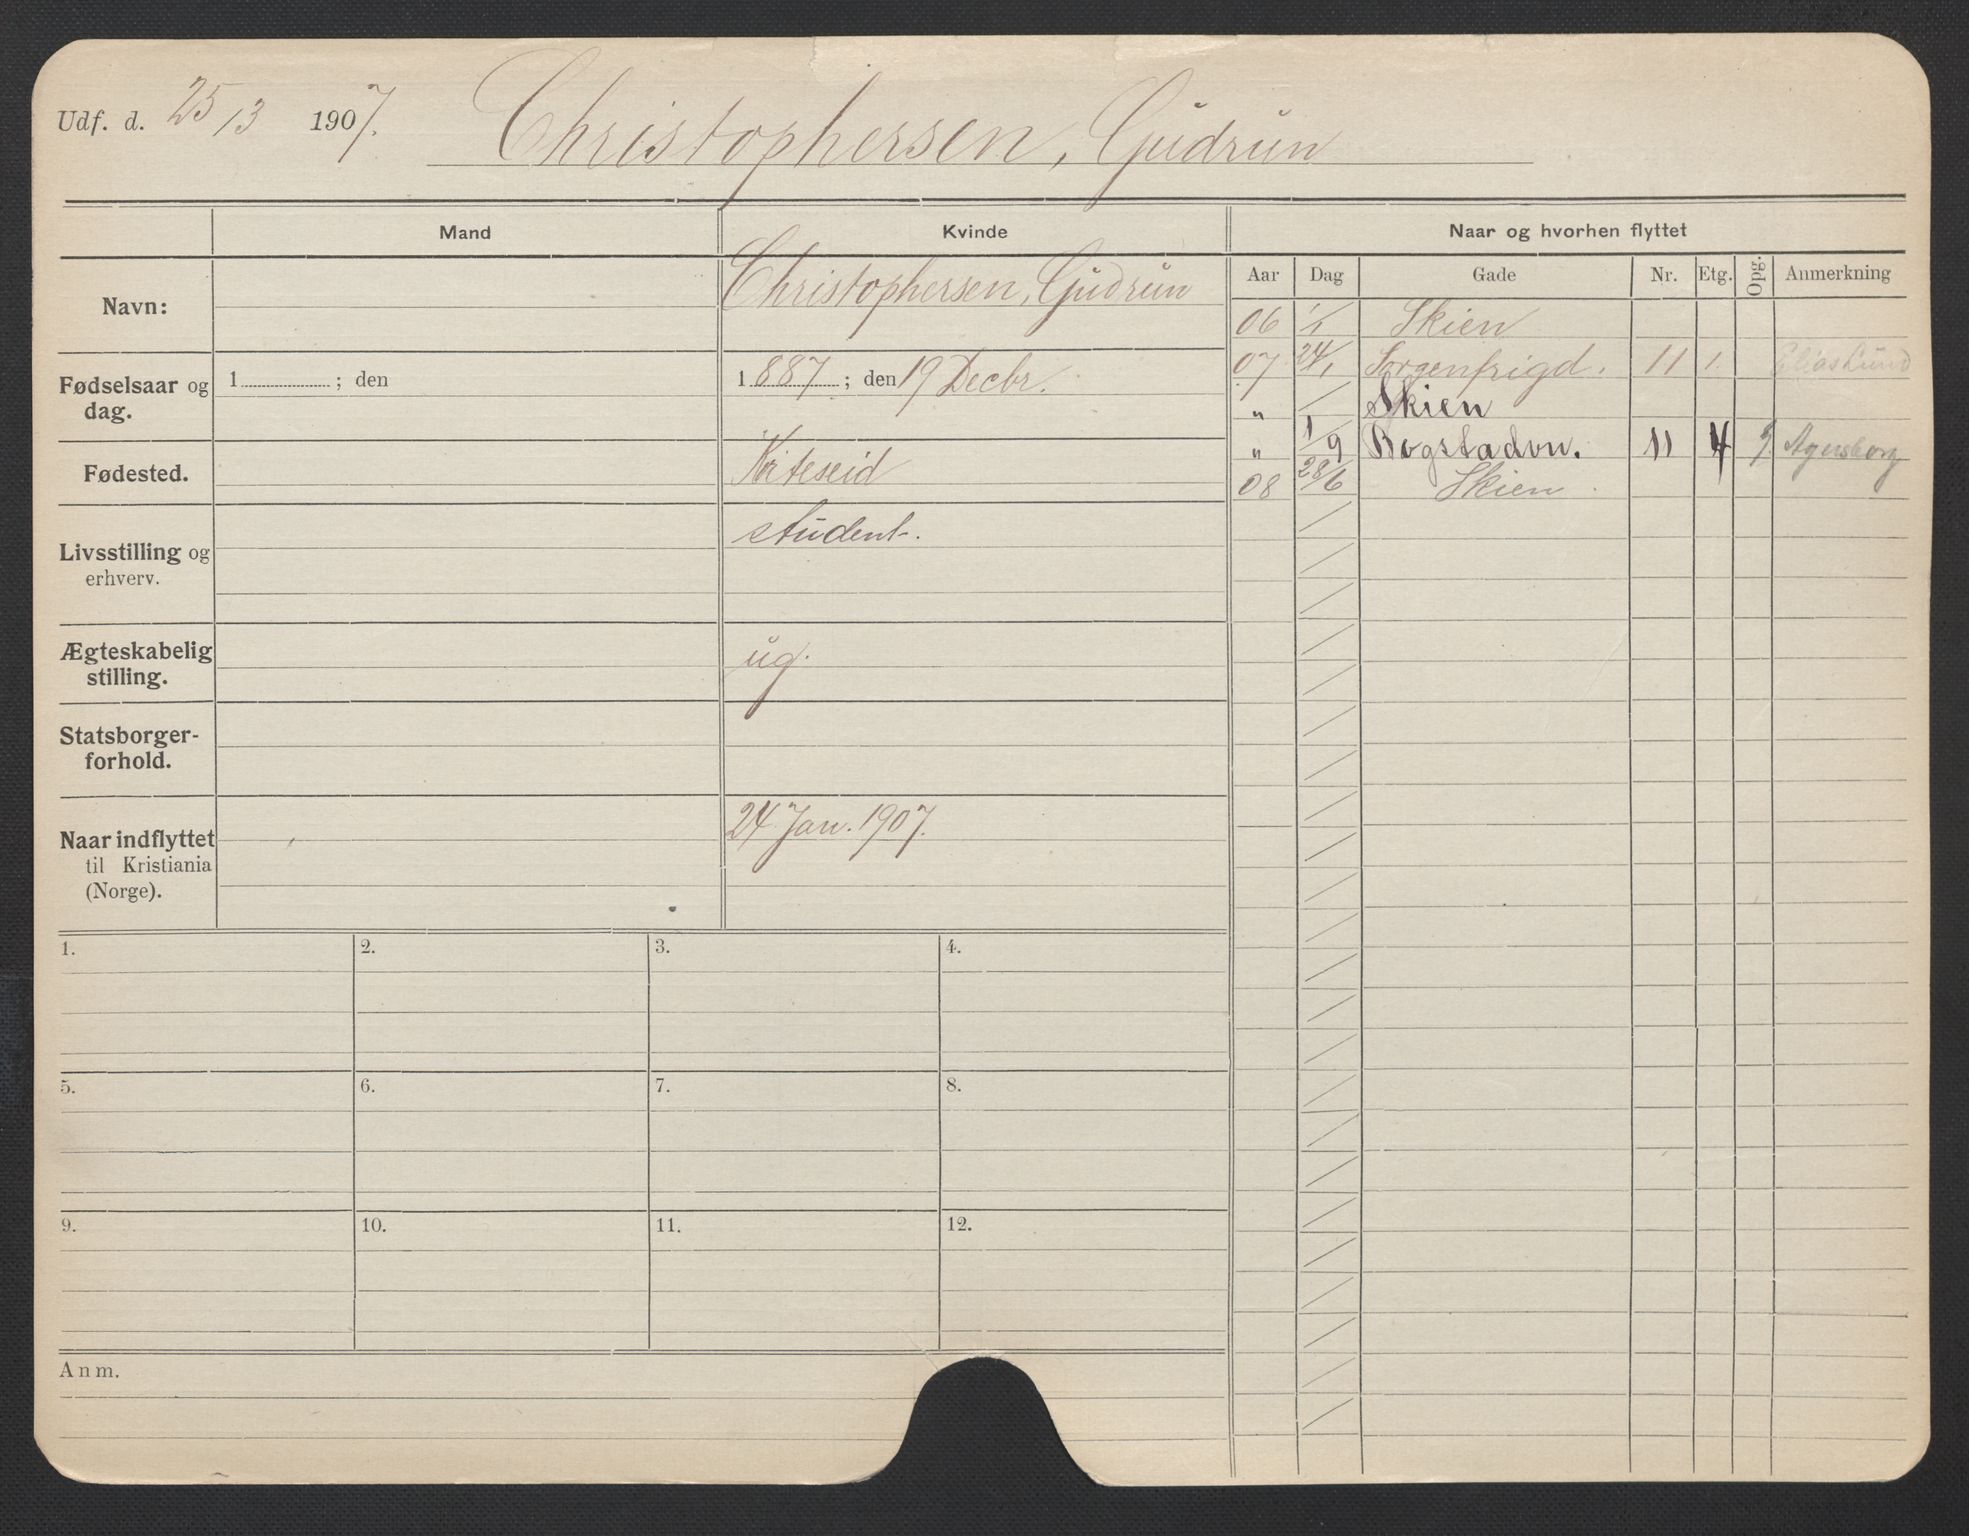 Udf. d. 25/3 1907. Christophersen, Gudrun
Mand
Kvinde
Naar og hvorhen flyttet
Navn:
Christophersen, Gudrun
Fødselsaar og dag.
1 ; den
1887 ; den 19 Decbr.
Fødested.
Kviteseid
Livsstilling og
erhverv.
student.
Ægteskabelig
stilling.
ug.
Statsborger-
forhold.
Naar indflyttet
til Kristiania
(Norge).
24 Jan. 1907.
Aar Dag Gade Nr. Etg. Opg. Anmerkning
06 1/1 Skien
07 24/1 Sorgenfrigd. 11 1. Elias Lund
" / Skien
" 1/9 Bogstadvn. 11 4
08 28/6 Skien
1. 2. 3. 4.
5. 6. 7. 8.
9. 10. 11. 12.
Anm.